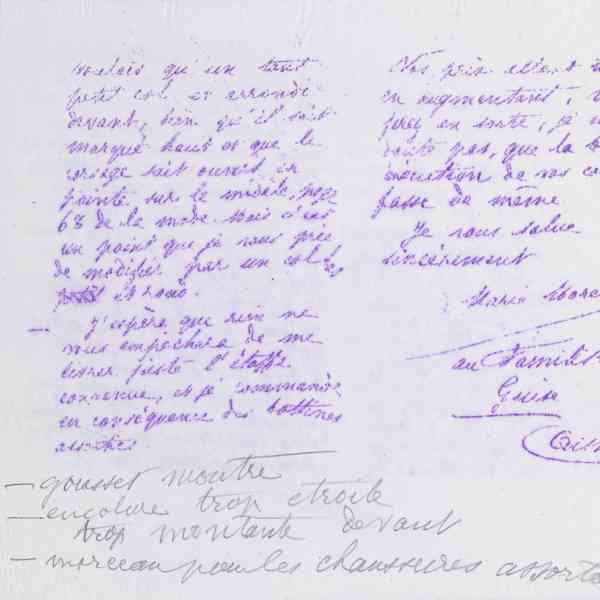 voulais qu'un tout
petit col et arrondi
devant, bien qu'il soit
marqué haut et que le
corsage soit ouvert en
pointe sur le modèle, page
68 de la mode. Mais c'est
un point que je vous prie
de modifier par un col
petit et rond.
— J'espère que rien ne
vous empêchera de me
livrer juste l'étoffe
convenue, et je commande
en conséquence des bottines
assorties.
Nos prix étant
en augmentant,
en sorte, je
doute pas, que la
de nos
fasse de même
Je vous salue
sincèrement
Marie
au Familistère
Guise
— gousset montre
— encolure trop étroite
trop montante devant
— morceau pour les chaussures